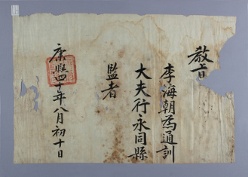 敎旨
李海朝爲通訓
大夫行永同縣
監者
康熙四十年八月初十日